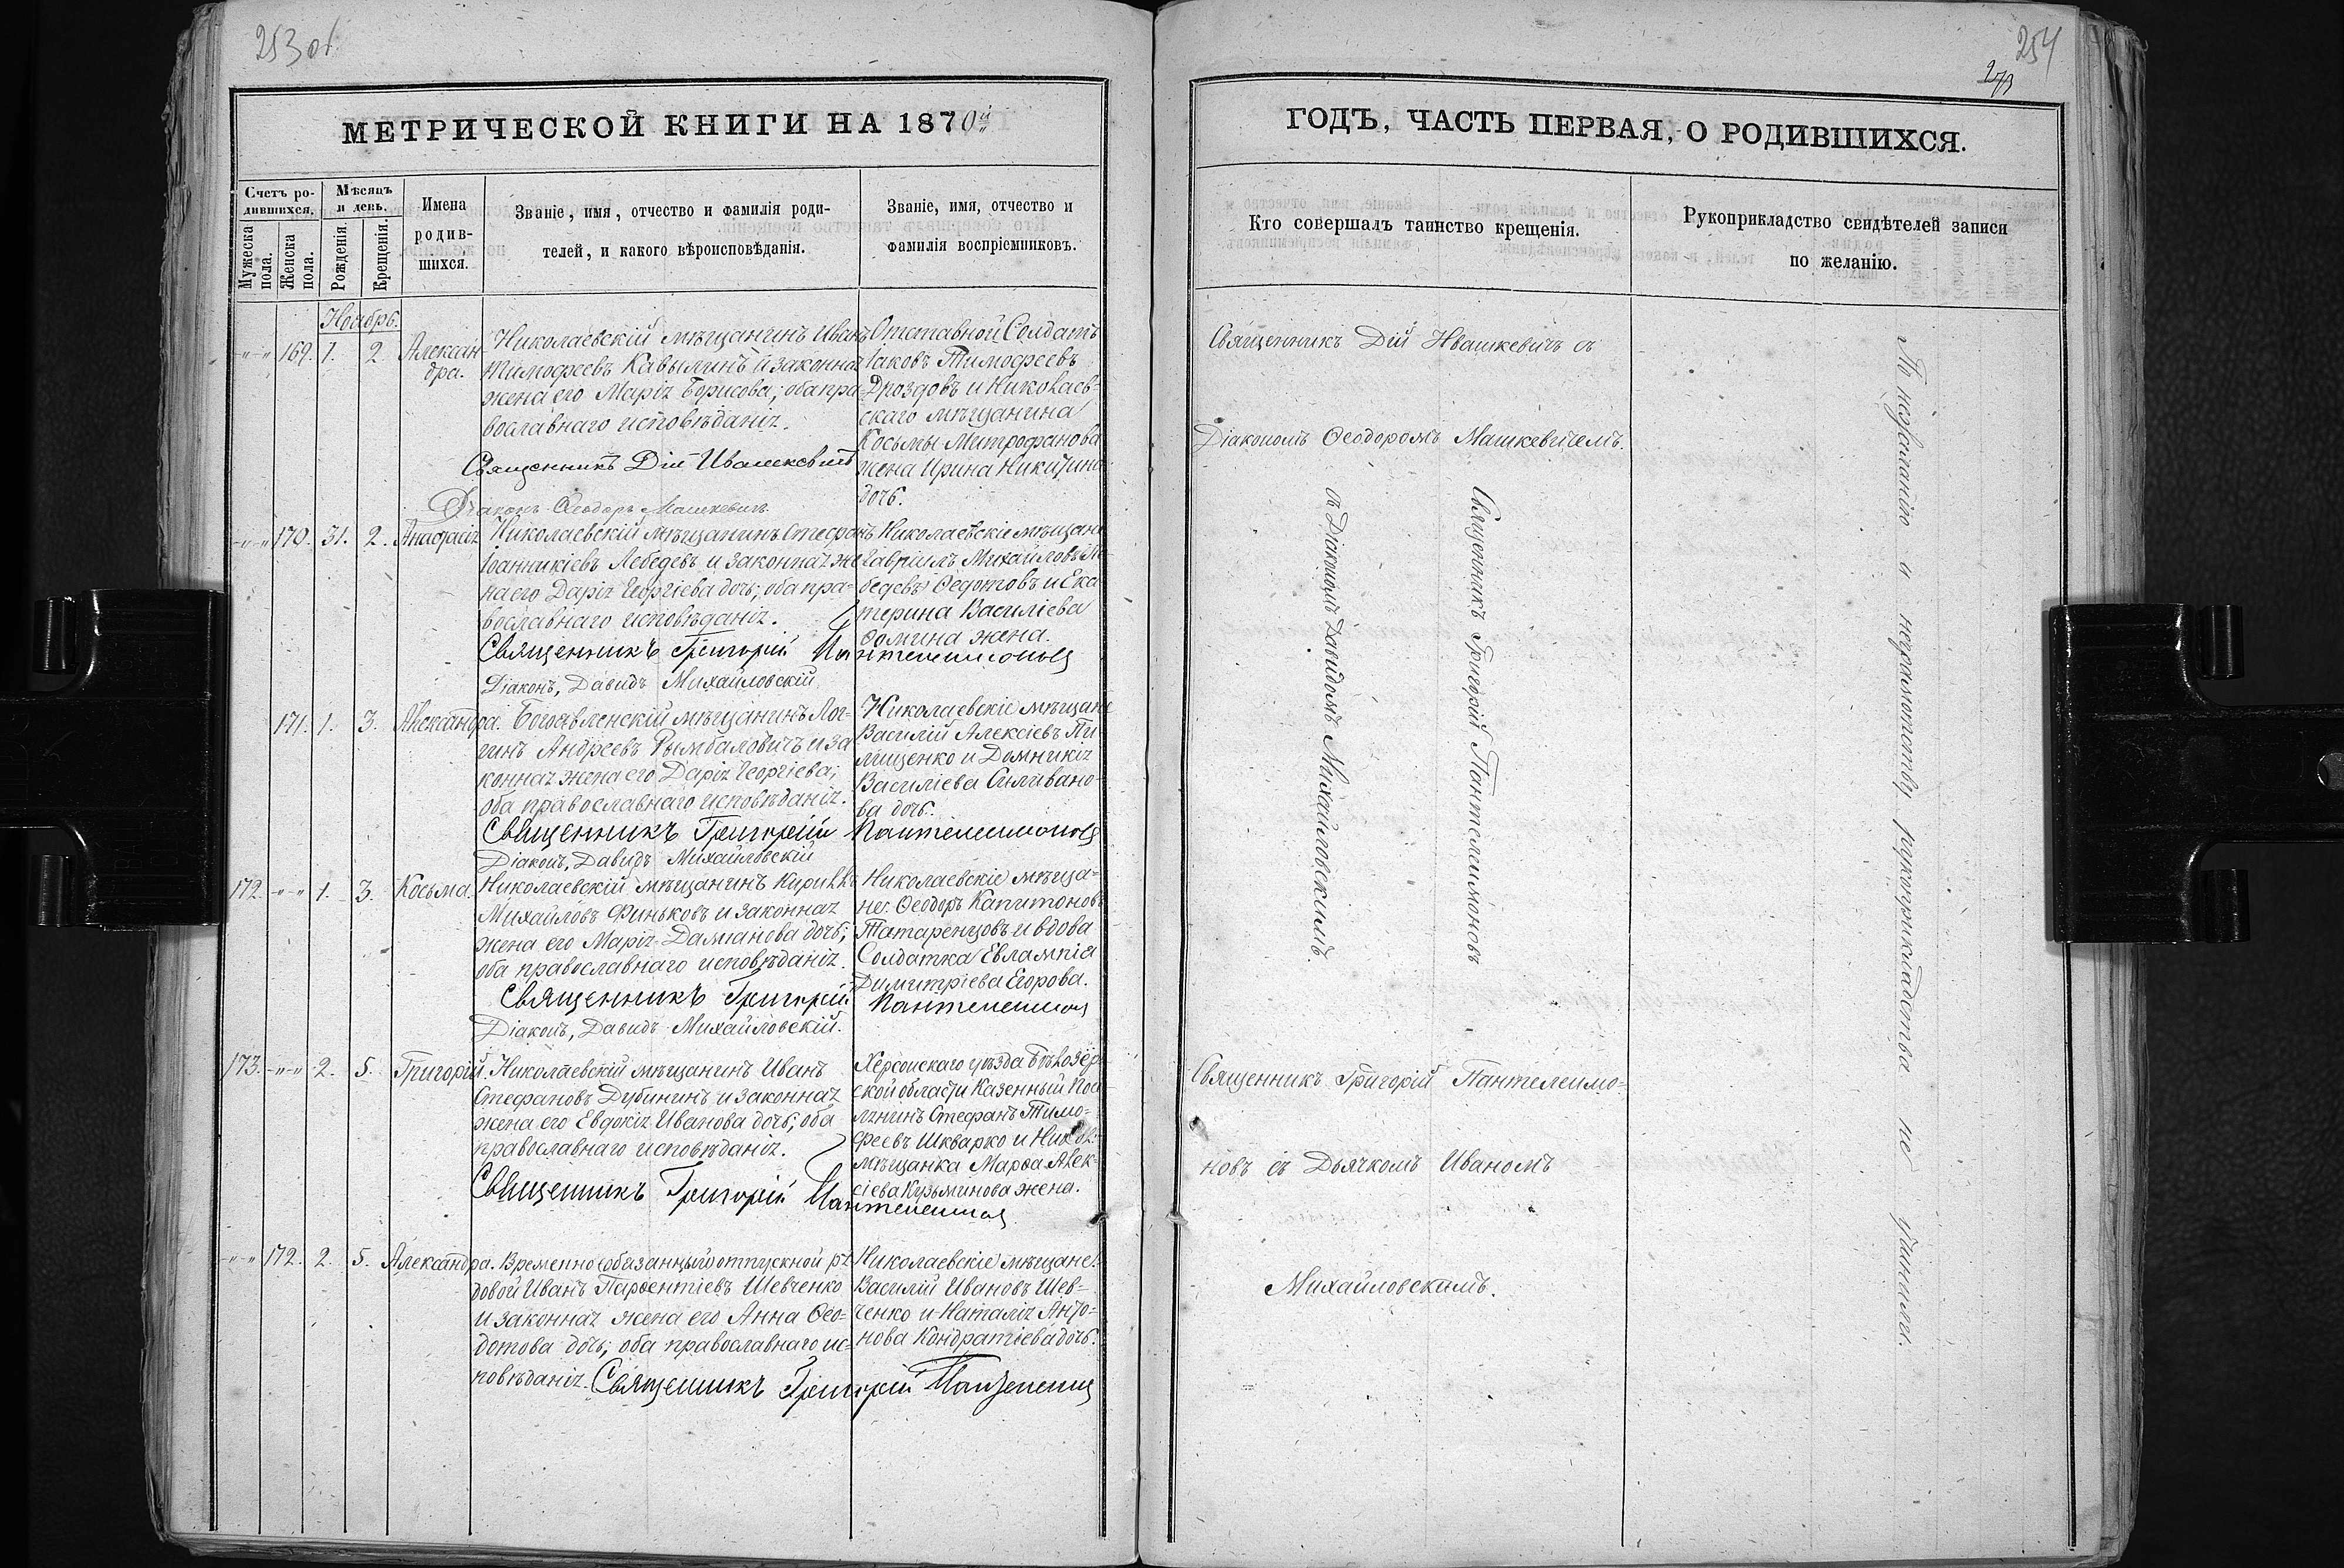 253 об
МЕТРИЧЕСКОЙ КНИГИ НА 1870й
Счетъ ро-
дившихся.
Мужеска
пола.
Женска
пола.
Мѣсяцъ
и день.
Рожденія.
Крещенія.
Имена
родив-
шихся.
Званіе, имя, отчество и фамилія роди-
телей, и какого вѣроисповѣданія.
Званіе, имя, отчество и
фамилія воспріемниковъ.
Ноябрь.
-"-" 169. 1. 2.
Алексан-
дра.
Николаевскій мѣщанинъ Иванъ
Тимофеевъ Кавылинъ и законная
жена его Марія Борисова; оба пра-
вославнаго исповѣданія.
Священникъ Дій Ивашкевичъ
Діаконъ Ѳеодоръ Машкевичъ
Отставной Солдатъ
Іаковъ Тимофеевъ
Дроздовъ и Николаев-
скаго мѣщанина
Косьмы Митрофанова
жена Ирина Никитина
дочь.
-"-" 170. 31. 2. Анастасія
Николаевскій мѣщанинъ Стефанъ
Іоанникіевъ Лебедевъ и законная же-
на его Дарія Георгіева дочь; оба пра-
вославнаго исповѣданія.
Священникъ Григорій Пантелеимоновъ
Діаконъ, Давидъ Михайловскій
Николаевскіе мѣщане
Гавріилъ Михайловъ Ле-
бедевъ Ѳедотовъ и Ека-
терина Василіева
Ѳомина жена.
171. 1. 3. Александра.
Богоявленскій мѣщанинъ Лог-
гинъ Андреевъ Рымбаловичъ и за
конная жена его Дарія Георгіева;
оба православнаго исповѣданія.
Священникъ Григорій Пантелеимоновъ
Діаконъ, Давидъ Михайловскій
Николаевскіе мѣщане
Василій Алексіевъ Пи-
лищенко и Домникія
Василіева Сливано-
ва дочь.
172. -"-" 1. 3. Косьма.
Николаевскій мѣщанинъ Кириллъ
Михайловъ Финьковъ и законная
жена его Марія Даміанова дочь;
оба православнаго исповѣданія.
Священникъ Григорій Пантелеимоновъ
Діаконъ, Давидъ Михайловскій.
Николаевскіе мѣща-
не: Ѳеодоръ Капитоновъ
Татаренцовъ и вдова
Солдатка Евлампія
Димитріева Егорова.
173. -"-" 2. 5. Григорій.
Николаевскій мѣщанинъ Иванъ
Стефановъ Дубининъ и законная
жена его Евдокія Иванова дочь; оба
православнаго исповѣданія.
Священникъ Григорій Пантелеимоновъ
Херсонскаго уѣзда Бѣлозер-
ской области Казенный Посе-
лянинъ Стефанъ Тимо-
феевъ Шкварко и Никол.
мѣщанка Марѳа Алек-
сіева Кузьминова жена.
-"-" 172. 2. 5. Александра.
Временно обязанный отпускной ря-
довой Иванъ Парѳентіевъ Шевченко
и законная жена его Анна Ѳео-
дотова дочь; оба православнаго ис-
повѣданія. Священникъ Григорій Пантелеим
Николаевскіе мѣщане:
Василій Ивановъ Шев-
ченко и Наталія Анто-
нова Кондратіева дочь.
254
273
ГОДЪ, ЧАСТЬ ПЕРВАЯ, О РОДИВШИХСЯ.
Кто совершалъ таинство крещенія.
Рукоприкладство свидѣтелей записи
по желанію.
Священникъ Дій Ивашкевичъ съ
Діакономъ Ѳеодоромъ Машкевичемъ.
Священникъ Григорій Пантелеимоновъ
съ Діакономъ Давидомъ Михайловскимъ.
Священникъ Григорій Пантелеимо-
новъ съ Дьячкомъ Иваномъ
Михайловскимъ.
По нежеланію и неграмотству рукоприкладства не учинили.